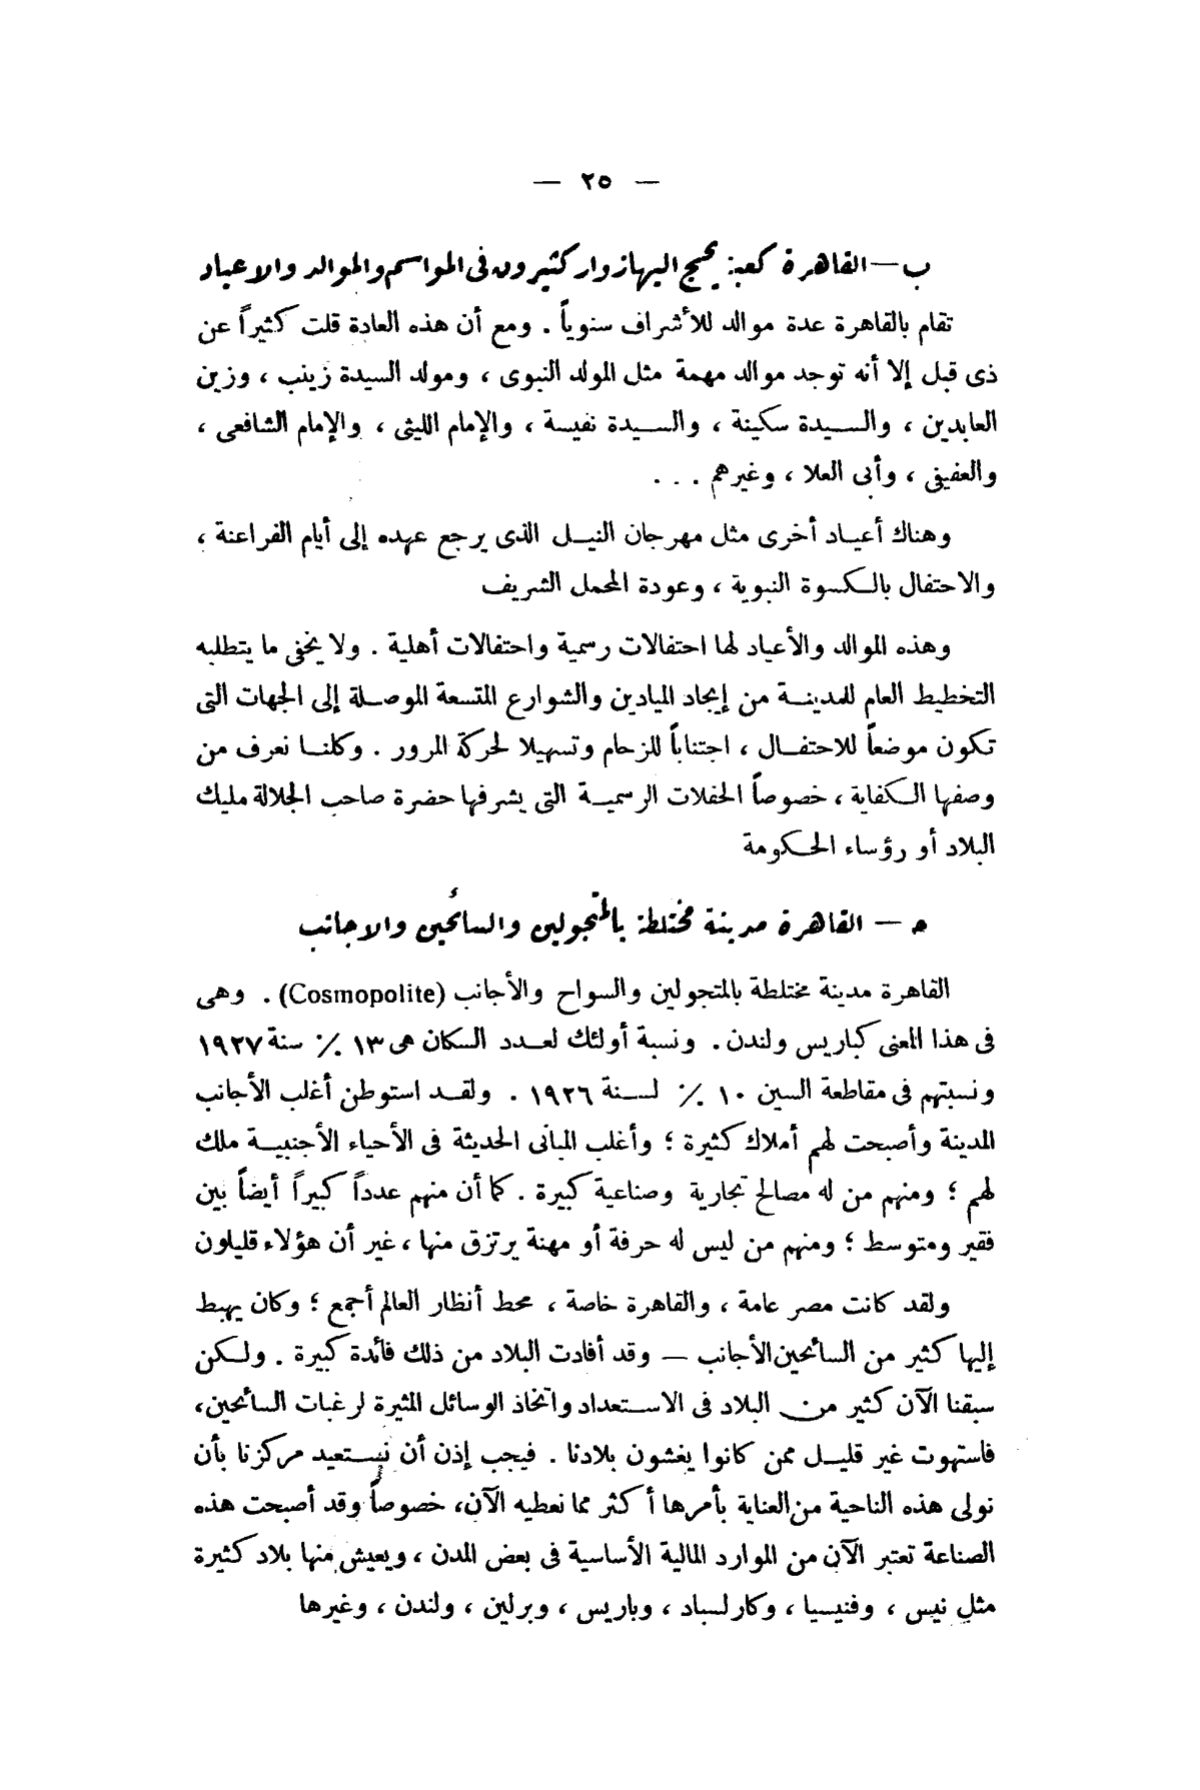 — ٢٥ —
ب — القاهرة كعبة يحج اليها زوار كثيرون فى المواسم والموالد والاعياد
تقام بالقاهرة عدة موالد للأشراف سنوياً . ومع أن هذه العادة قلت كثيراً عن
ذى قبل إلا أنه توجد موالد مهمة مثل المولد النبوى ، ومولد السيدة زينب ، وزين
العابدين ، والسيدة سكينة ، والسيدة نفيسة ، والإمام الليثى ، والإمام الشافعى ،
والعفيفى ، وأبى العلا ، وغيرهم . . .
وهناك أعياد أخرى مثل مهرجان النيل الذى يرجع عهده إلى أيام الفراعنة ،
والاحتفال بالكسوة النبوية ، وعودة المحمل الشريف
وهذه الموالد والأعياد لها احتفالات رسمية واحتفالات أهلية . ولا يخفى ما يتطلبه
التخطيط العام للمدينة من إيجاد الميادين والشوارع المتسعة الموصلة إلى الجهات التى
تكون موضعاً للاحتفال ، اجتناباً للزحام وتسهيلا لحركة المرور . وكلنا نعرف من
وصفها الكفاية ، خصوصاً الحفلات الرسمية التى يشرفها حضرة صاحب الجلالة مليك
البلاد أو رؤساء الحكومة
ﻫ — القاهرة مدينة مختلطة بالمتجولين والسائحين والاجانب
القاهرة مدينة مختلطة بالمتجولين والسواح والأجانب (Cosmopolite) . وهى
فى هذا المعنى كباريس ولندن . ونسبة أولئك لعدد السكان هى ١٣ ٪ سنة ١٩٢٧
ونسبتهم فى مقاطعة السين ١٠ ٪ لسنة ١٩٢٦ . ولقد استوطن أغلب الأجانب
المدينة وأصبحت لهم أملاك كثيرة ؛ وأغلب المبانى الحديثة فى الأحياء الأجنبية ملك
لهم ؛ ومنهم من له مصالح تجارية وصناعية كبيرة . كما أن منهم عدداً كبيراً أيضاً بين
فقير ومتوسط ؛ ومنهم من ليس له حرفة أو مهنة يرتزق منها ، غير أن هؤلاء قليلون
ولقد كانت مصر عامة ، والقاهرة خاصة ، محط أنظار العالم أجمع ؛ وكان يهبط
إليها كثير من السائحين الأجانب — وقد أفادت البلاد من ذلك فائدة كبيرة . ولكن
سبقنا الآن كثير من البلاد فى الاستعداد واتخاذ الوسائل المثيرة لرغبات السائحين،
فاستهوت غير قليل ممن كانوا يغشون بلادنا . فيجب إذن أن نستعيد مركزنا بأن
نولى هذه الناحية من العناية بأمرها أكثر مما نعطيه الآن، خصوصاً وقد أصبحت هذه
الصناعة تعتبر الآن من الموارد المالية الأساسية فى بعض المدن ، ويعيش منها بلاد كثيرة
مثل نيس ، وفنيسيا ، وكارلسباد ، وباريس ، وبرلين ، ولندن ، وغيرها